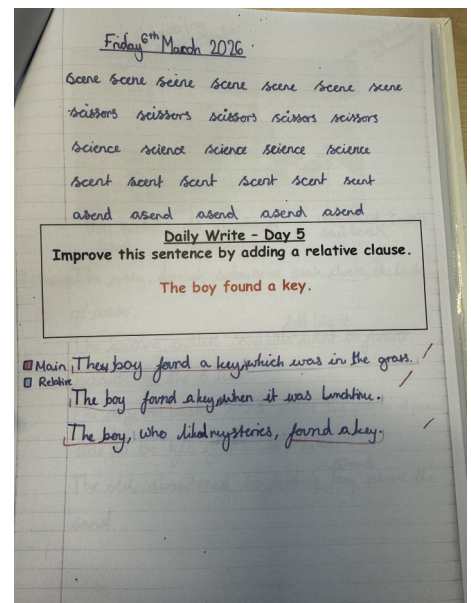 Friday 6th March 2026
scene scene seine scene scene scene scene
scissors scissors scissors scissors scissors
science science science science science
scent scent scent scent scent scent
asend asend asend asend asend
Daily Write - Day 5
Improve this sentence by adding a relative clause.
The boy found a key.
Main The boy found a key, which was in the grass.
Relative
The boy found a key, when it was lunchtime.
The boy, who liked mysteries, found a key.